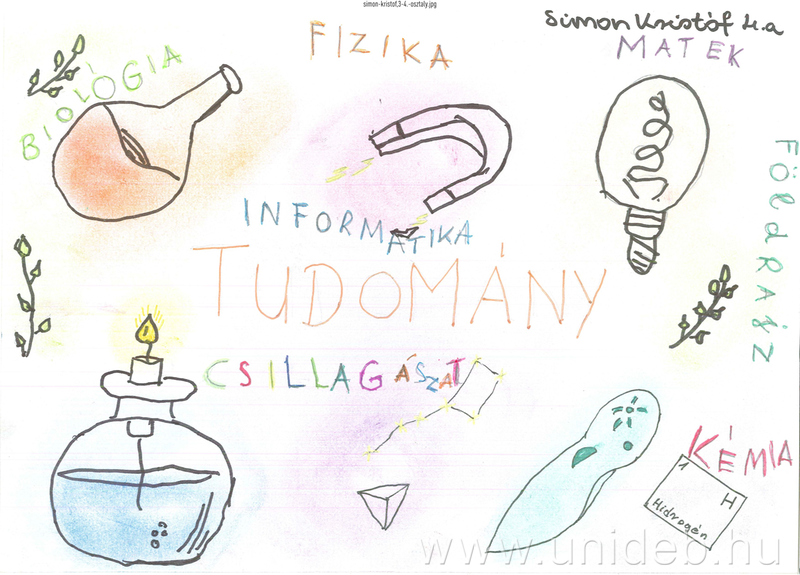 simon-kristof,3-4.-osztaly.jpg
Simon Kristóf 4.a
FIZIKA
MATEK
BIOLÓGIA
FÖLdRAJZ
INFORMATIKA
TUDOMÁNY
CSILLAGÁSZAT
KÉMIA
1
H
Hidrogén
www.unideb.hu